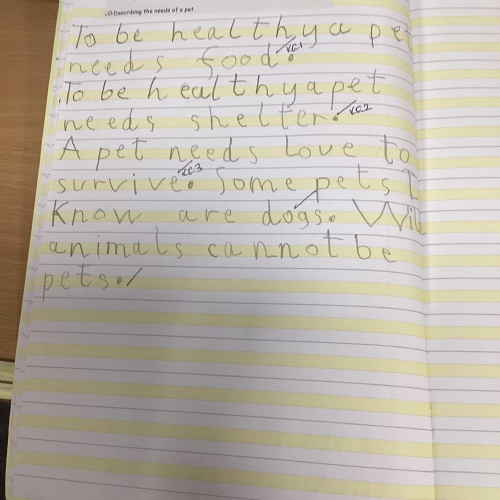 LO:Describing the needs of a pet.
To be healthy a pet
needs food. KC1
To be healthy a pet
needs shelter. KC2
A pet needs Love to
survive. KC3 Some pets I
Know are dogs. Wild
animals cannot be
pets.